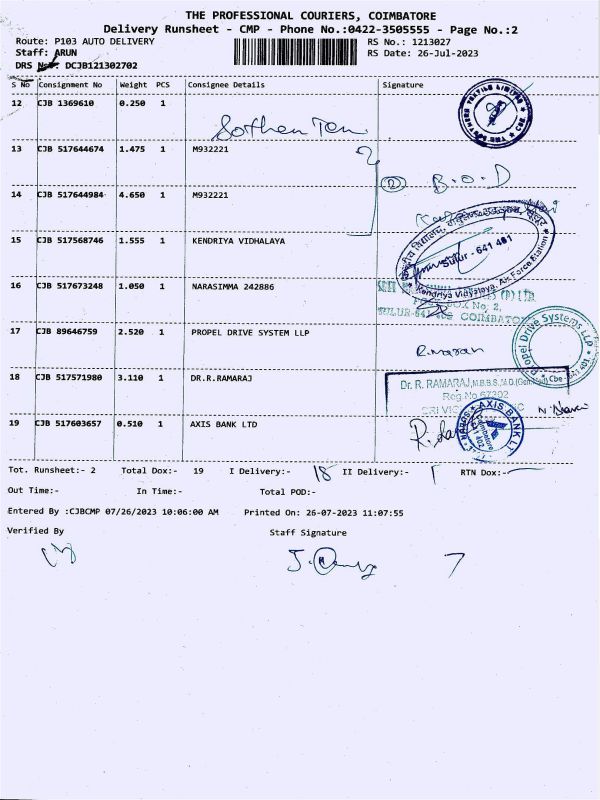 THE PROFESSIONAL COURIERS, COIMBATORE
Delivery Runsheet - CMP - Phone No.:0422-3505555 - Page No.:2
Route: P103 AUTO DELIVERY RS No.: 1213027
Staff: ARUN RS Date: 26-Jul-2023
DRS No: DCJB121302702
S No Consignment No Weight PCS Consignee Details Signature
12 CJB 1369610 0.250 1
13 CJB 517644674 1.475 1 M932221
14 CJB 517644984 4.650 1 M932221
② B.O.D
15 CJB 517568746 1.555 1 KENDRIYA VIDHALAYA
Sulur - 641 401
Kendriya Vidyalaya, Air Force Station
16 CJB 517673248 1.050 1 NARASIMMA 242886
BOX No. 2,
SULUR-641 COIMBATORE
17 CJB 89646759 2.520 1 PROPEL DRIVE SYSTEM LLP
R.maran
Propel Drive Systems LLP
Cbe - 641 401
18 CJB 517571980 3.110 1 DR.R.RAMARAJ
Dr. R. RAMARAJ,M.B.B.S.,M.D.
Reg.No 67302
19 CJB 517603657 0.510 1 AXIS BANK LTD
AXIS BANK LT
Tot. Runsheet:- 2 Total Dox:- 19 I Delivery:- 18 II Delivery:- 1 RTN Dox:-
Out Time:- In Time:- Total POD:-
Entered By :CJBCMP 07/26/2023 10:06:00 AM Printed On: 26-07-2023 11:07:55
Verified By Staff Signature